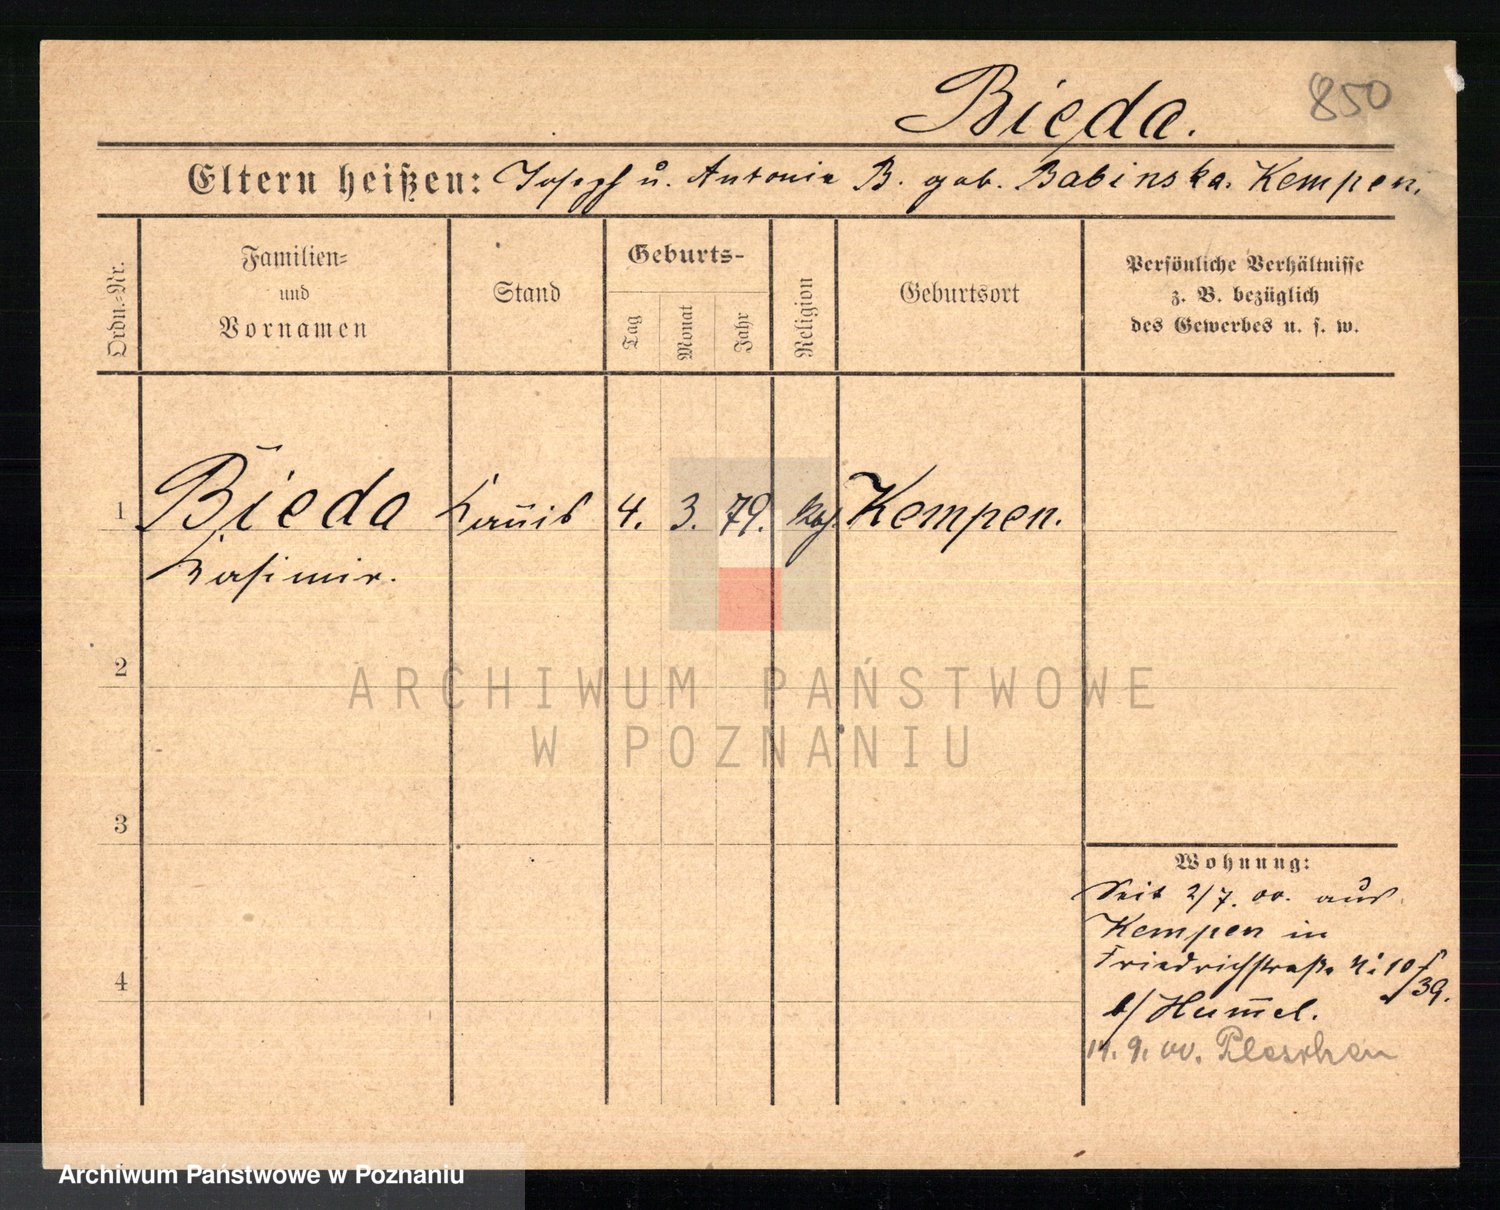 850
Bieda.
Eltern heißen: Joseph u. Antonie B. geb. Babinska. Kempen.
Ordn.-Nr.
Familien-
und
Vornamen
Stand
Geburts-
Tag
Monat
Jahr
Religion
Geburtsort
Persönliche Verhältnisse
z. B. bezüglich
des Gewerbes u. s. w.
1 Bieda 4. 3. 79. kath. Kempen.
Kasimir.
2
3
4
Wohnung:
Seit 2/7. 00. aus
Kempen in
Friedrichstraße N: 10
39.
b/ Hum̅el.
9. 00. Pleschen
ARCHIWUM PAŃSTWOWE
W POZNANIU
Archiwum Państwowe w Poznaniu